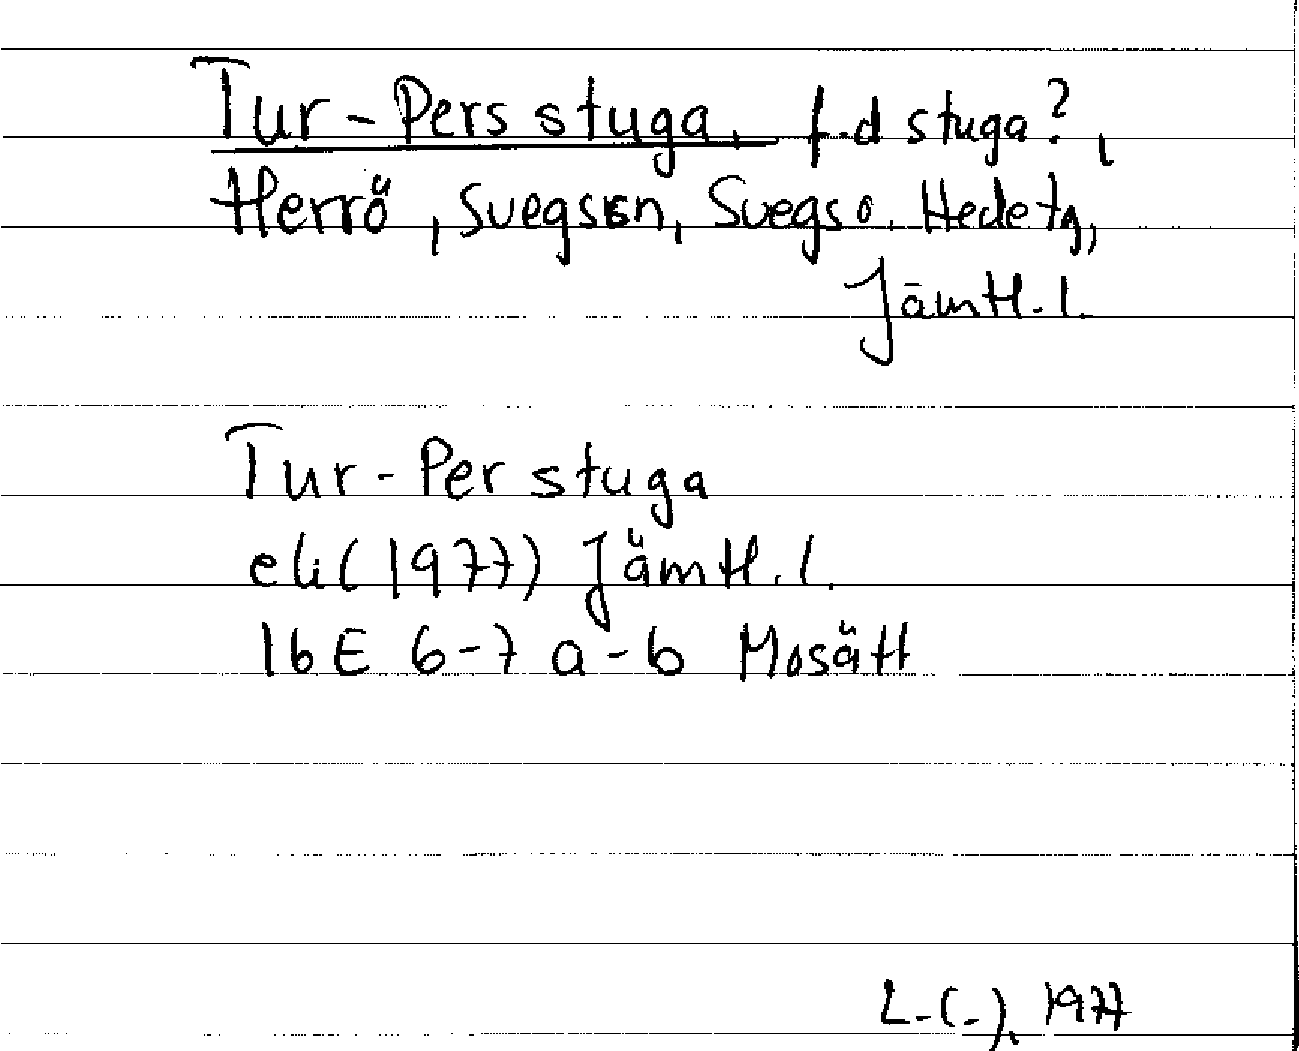 Tur-Pers stuga, f.d stuga?,
Herrö, Svegs sn, Svegs o. Hede tg,
Jämtl. l.
Tur-Per stuga
eli (1977) Jämtl. l.
16E 6-7 a-b Mosätt
L-(-), 1977